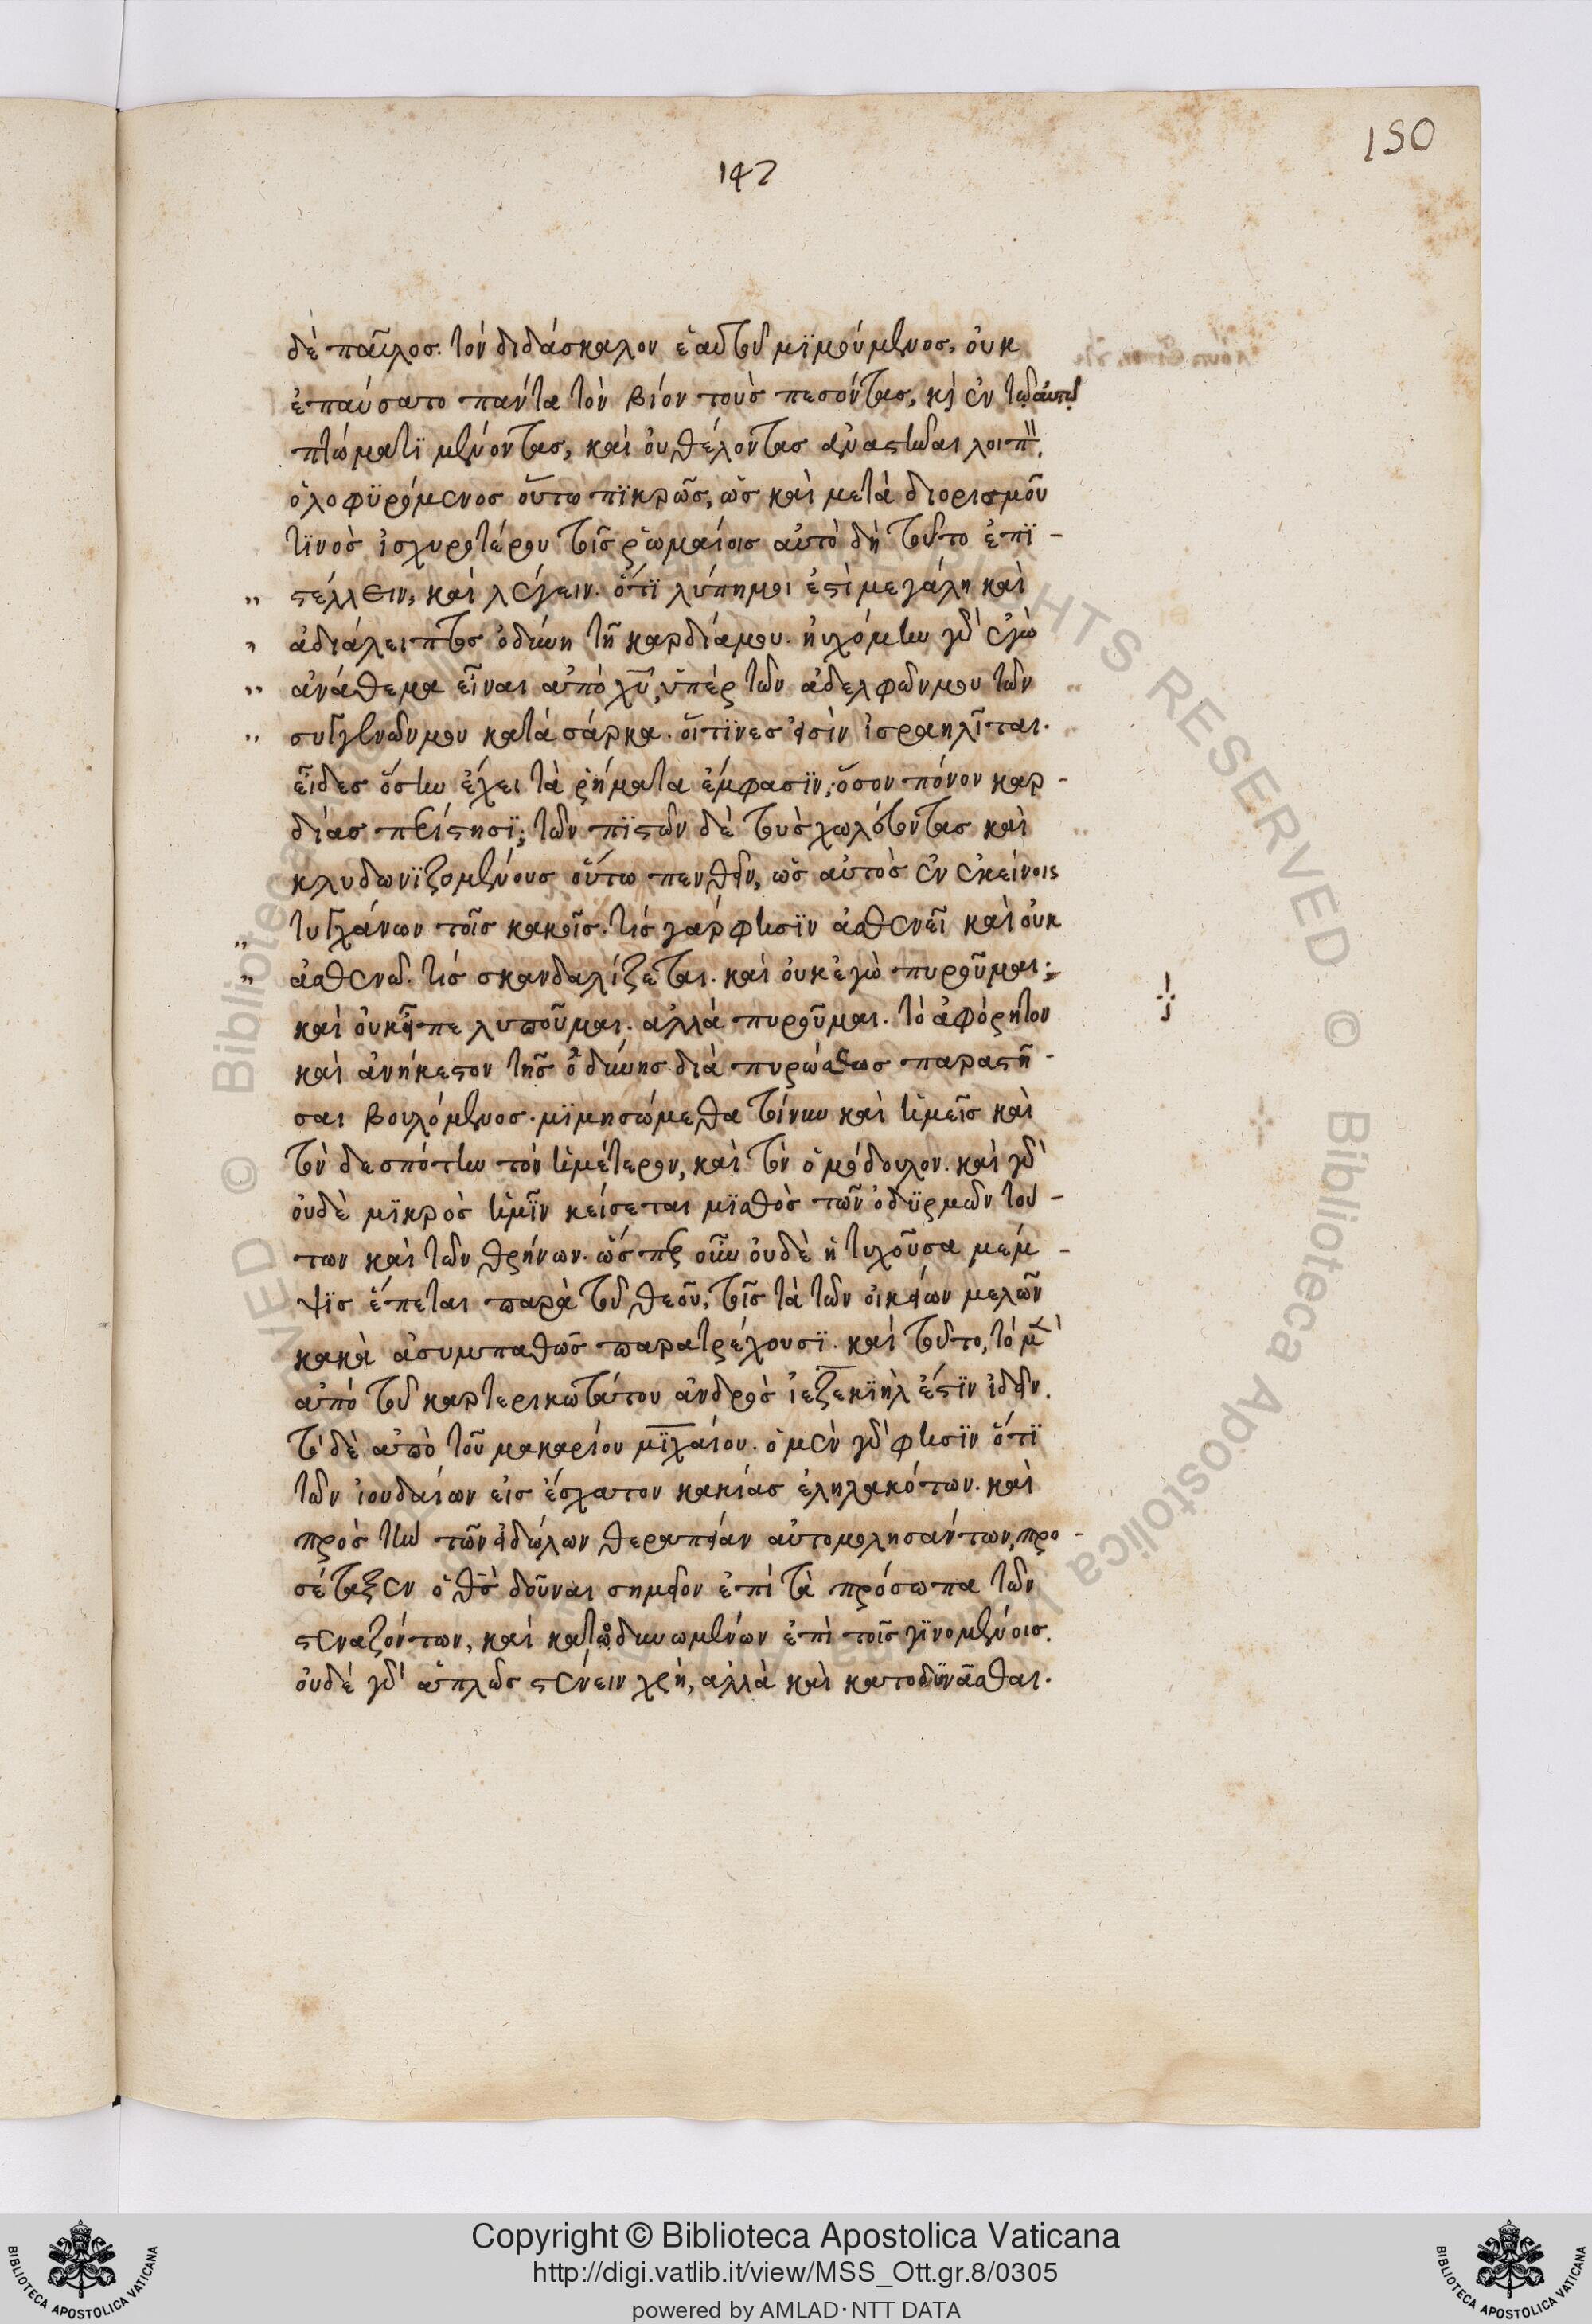 150
147
δὲ παῦλος. τὸν διδάσκαλον ἑαυτοῦ μϊμούμενος, οὐκ
ἐπαύσατο πάντα τὸν βίον τοὺς πεσόντας, κὶ ἐν τῷ αὐτῷ
πτώματϊ μένοντας, καὶ οὐ θέλοντας ἀναστῆναι
ὀλοφϋρόμενος οὕτω πϊκρῶς, ὡς καὶ μετὰ διορισμοῦ
τϊνὸς ἰσχυροτέρου τοῖς ῥωμαίοις αὐτὸ δὴ τοῦτο ἐπϊ-
" στέλλειν, καὶ λέγειν. ὅτϊ λύπη μοι ἐστὶ μεγάλη καὶ
" ἀδιάλειπτος ὀδύνη τῇ καρδία μου. ηὐχόμην γὰρ ἐγὼ
" ἀνάθεμα εἶναι ἀπὸ χυ, ὑπὲρ τῶν ἀδελφῶν μου τῶν
" συγγενῶν μου κατὰ σάρκα. οἵτϊνες εἰσὶν ἰσραηλῖται.
εἶδες ὅσην ἔχει τὰ ῥήματα ἔμφασϊν; ὅσον πόνον καρ-
δίας περιΐστησϊ; τῶν πϊστῶν δὲ τοὺς χωλεύοντας καὶ
κλυδωνϊζομένους οὕτω πενθεῖν, ὡς αὐτὸς ἐν ἐκείνοις
" τυγχάνων τοῖς κακοῖς. τίς γάρ φησϊν ἀσθενεῖ καὶ οὐκ
" ἀσθενῶ. τίς σκανδαλίζεται. καὶ οὐκ ἐγὼ πυροῦμαι;
καὶ οὐκ εἶπε λυποῦμαι. ἀλλὰ πυροῦμαι. τὸ ἀφόρητον
καὶ ἀνήκεστον τῆς ὀδύνης διὰ πυρώσεως παραστῆ-
σαι βουλόμενος. μϊμησώμεθα τοίνυν καὶ ἡμεῖς καὶ
τὸν δεσπότην τὸν ἡμέτερον, καὶ τὸν ὁμόδουλον. καὶ γὰρ
οὐδὲ μϊκρὸς ἡμῖν κείσεται μϊσθὸς τῶν ὀδϋρμῶν τού-
των καὶ τῶν θρήνων. ὥσπερ οὖν οὐδὲ ἡ τυχοῦσα μέμ-
ψϊς ἕπεται παρὰ τοῦ θεοῦ, τοῖς τὰ τῶν οἰκείων μελῶν
κακὰ ἀσυμπαθῶς παρατρέχουσϊ. καὶ τοῦτο, τὸ μὲν
ἀπὸ τοῦ καρτερικωτάτου ἀνδρὸς ἰεζεκϊὴλ ἔστϊν ἰδεῖν.
τὸ δὲ ἀπὸ τοῦ μακαρίου μϊχαίου. ὁ μὲν γὰρ φησϊν ὅτϊ
τῶν ἰουδαίων εἰς ἔσχατον κακίας ἐληλακότων. καὶ
πρὸς τὴν τῶν εἰδώλων θεραπείαν αὐτομολησάντων, προ-
σέταξεν ὁ θς δοῦναι σημεῖον ἐπὶ τὰ πρόσωπα τῶν
στεναζόντων, καὶ κατωδυνωμένων ἐπὶ τοῖς γϊνομένοις.
οὐδὲ γὰρ ἁπλῶς στένειν χρή, ἀλλὰ καὶ κατοδϋνᾶσθαι.
Copyright © Biblioteca Apostolica Vaticana
http://digi.vatlib.it/view/MSS_Ott.gr.8/0305
powered by AMLAD·NTT DATA